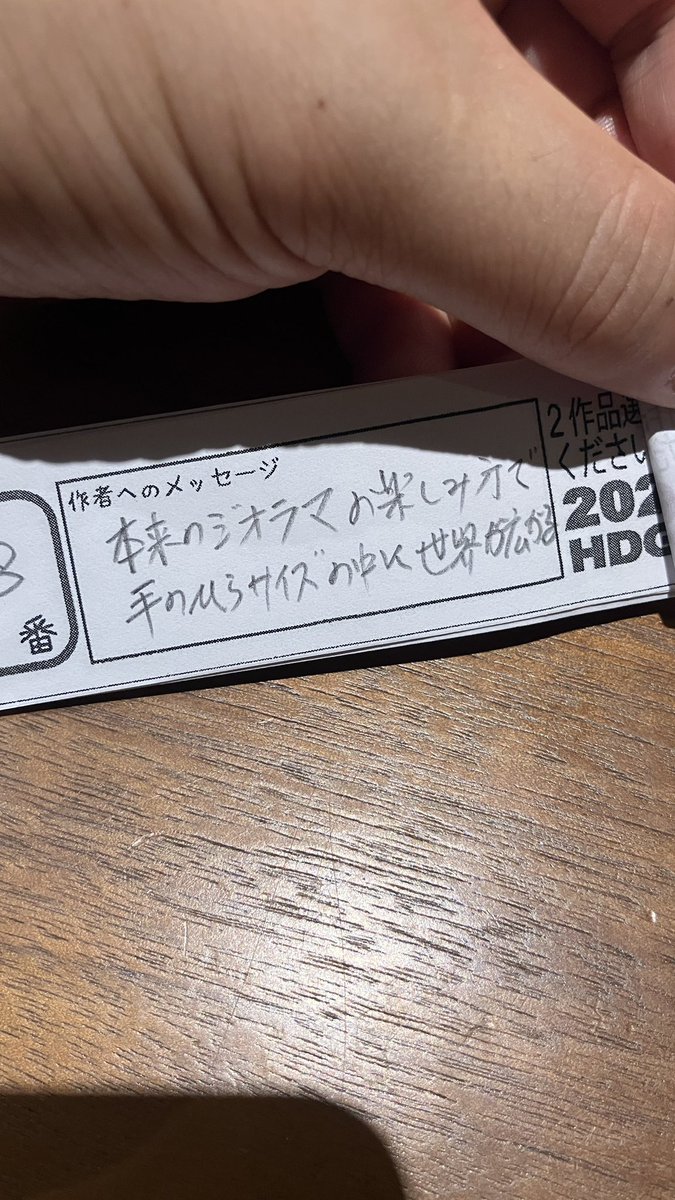 作者へのメッセージ
本来のジオラマの楽しみ方で
手のひらサイズの中に世界が広がる
3
番
2作品選
ください
202
HDG